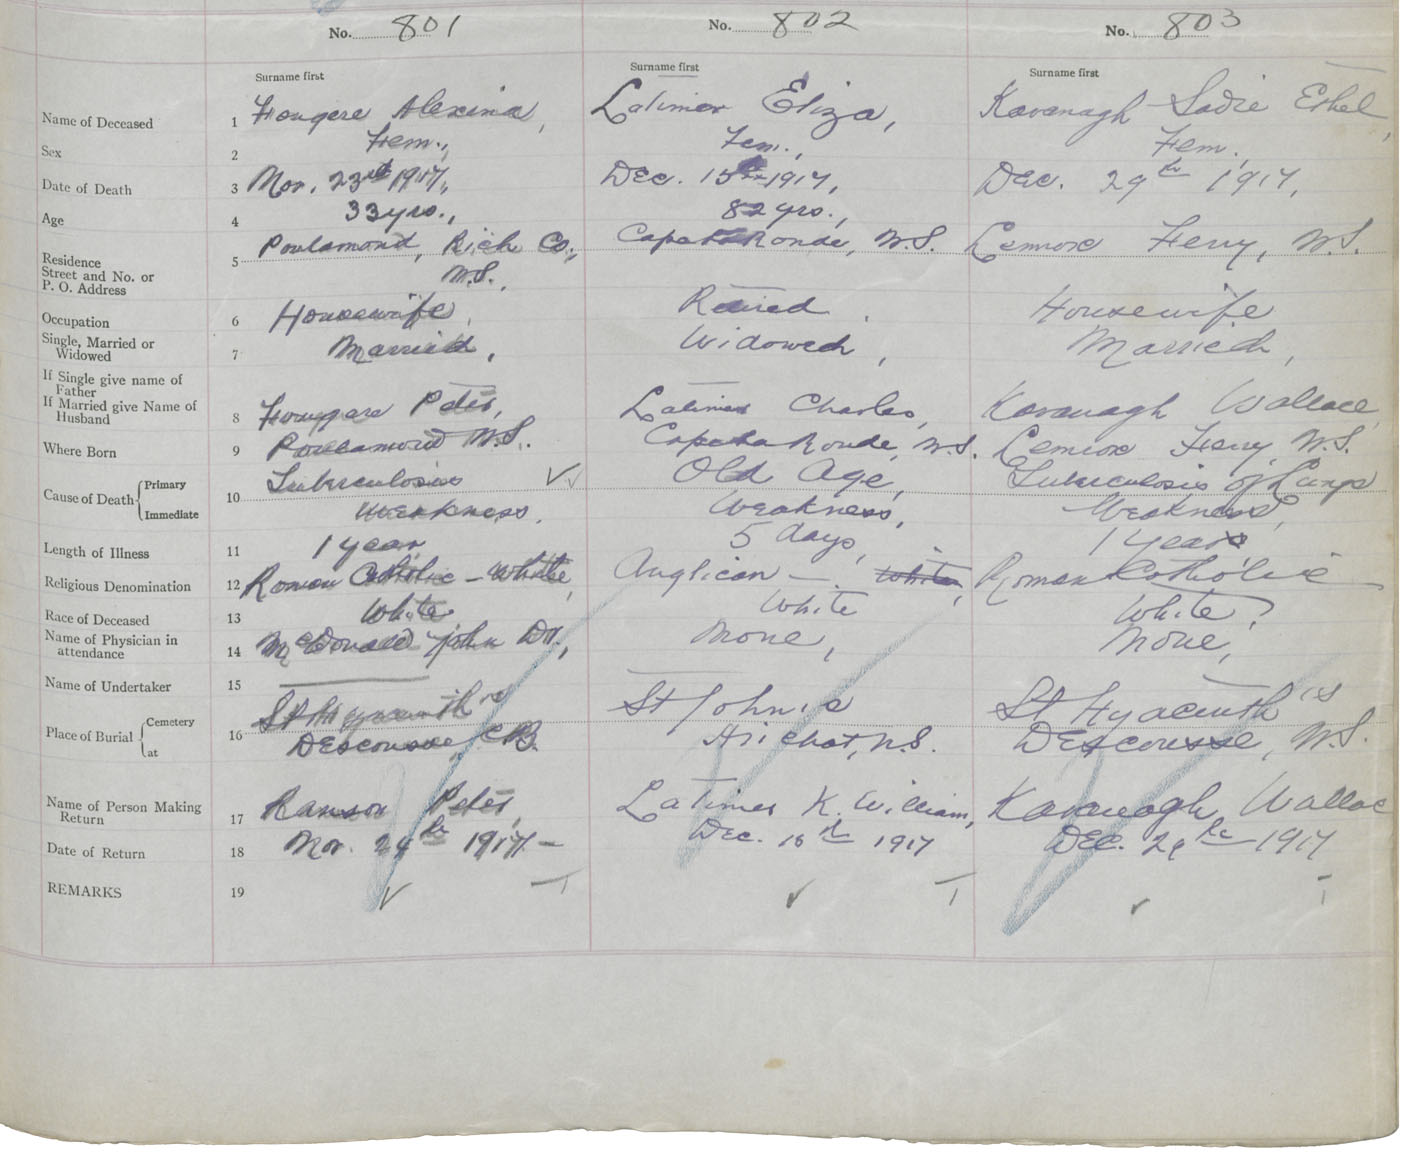 No. 801 No. 802 No. 803
Surname first Surname first Surname first
Name of Deceased 1 Fougere Alexina, Latimer Eliza, Kavanagh Sadie Ethel,
Sex 2 Fem., Fem., Fem.,
Date of Death 3 Nov. 23rd 1917, Dec. 15th 1917, Dec. 29th 1917,
Age 4 33 yrs., 82 yrs.,
Residence
Street and No. or
P. O. Address 5 Poulamond, Rich Co., Cape La Ronde, N.S. Lennox Ferry, N.S.
N.S.,
Occupation 6 Housewife, Retired, Housewife
Single, Married or
Widowed 7 Married, Widowed, Married,
If Single give name of
Father
If Married give Name of
Husband 8 Fougere Peter, Latimer Charles, Kavanagh Wallace,
Where Born 9 Poulamond N.S. Cape La Ronde, N.S. Lennox Ferry, N.S.
Cause of Death Primary Tuberculosis Old Age, Tuberculosis of Lungs
10
Immediate Weakness, Weakness, Weakness,
Length of Illness 11 1 year, 5 days, 1 year
Religious Denomination 12 Roman Catholic - White, Anglican - White, Roman Catholic
Race of Deceased 13 White White White,
Name of Physician in
attendance 14 McDonald John Dr., None, None,
Name of Undertaker 15
Place of Burial Cemetery St Hyacinth St John's St Hyacinth's
16
at Descousse, C.B. Arichat, N.S. Descousse, N.S.
Name of Person Making
Return 17 Peter, Latimer K. William, Kavanagh, Wallac
Date of Return 18 Nov. 24th 1917 - Dec. 16th 1917 Dec. 29th 1917
REMARKS 19